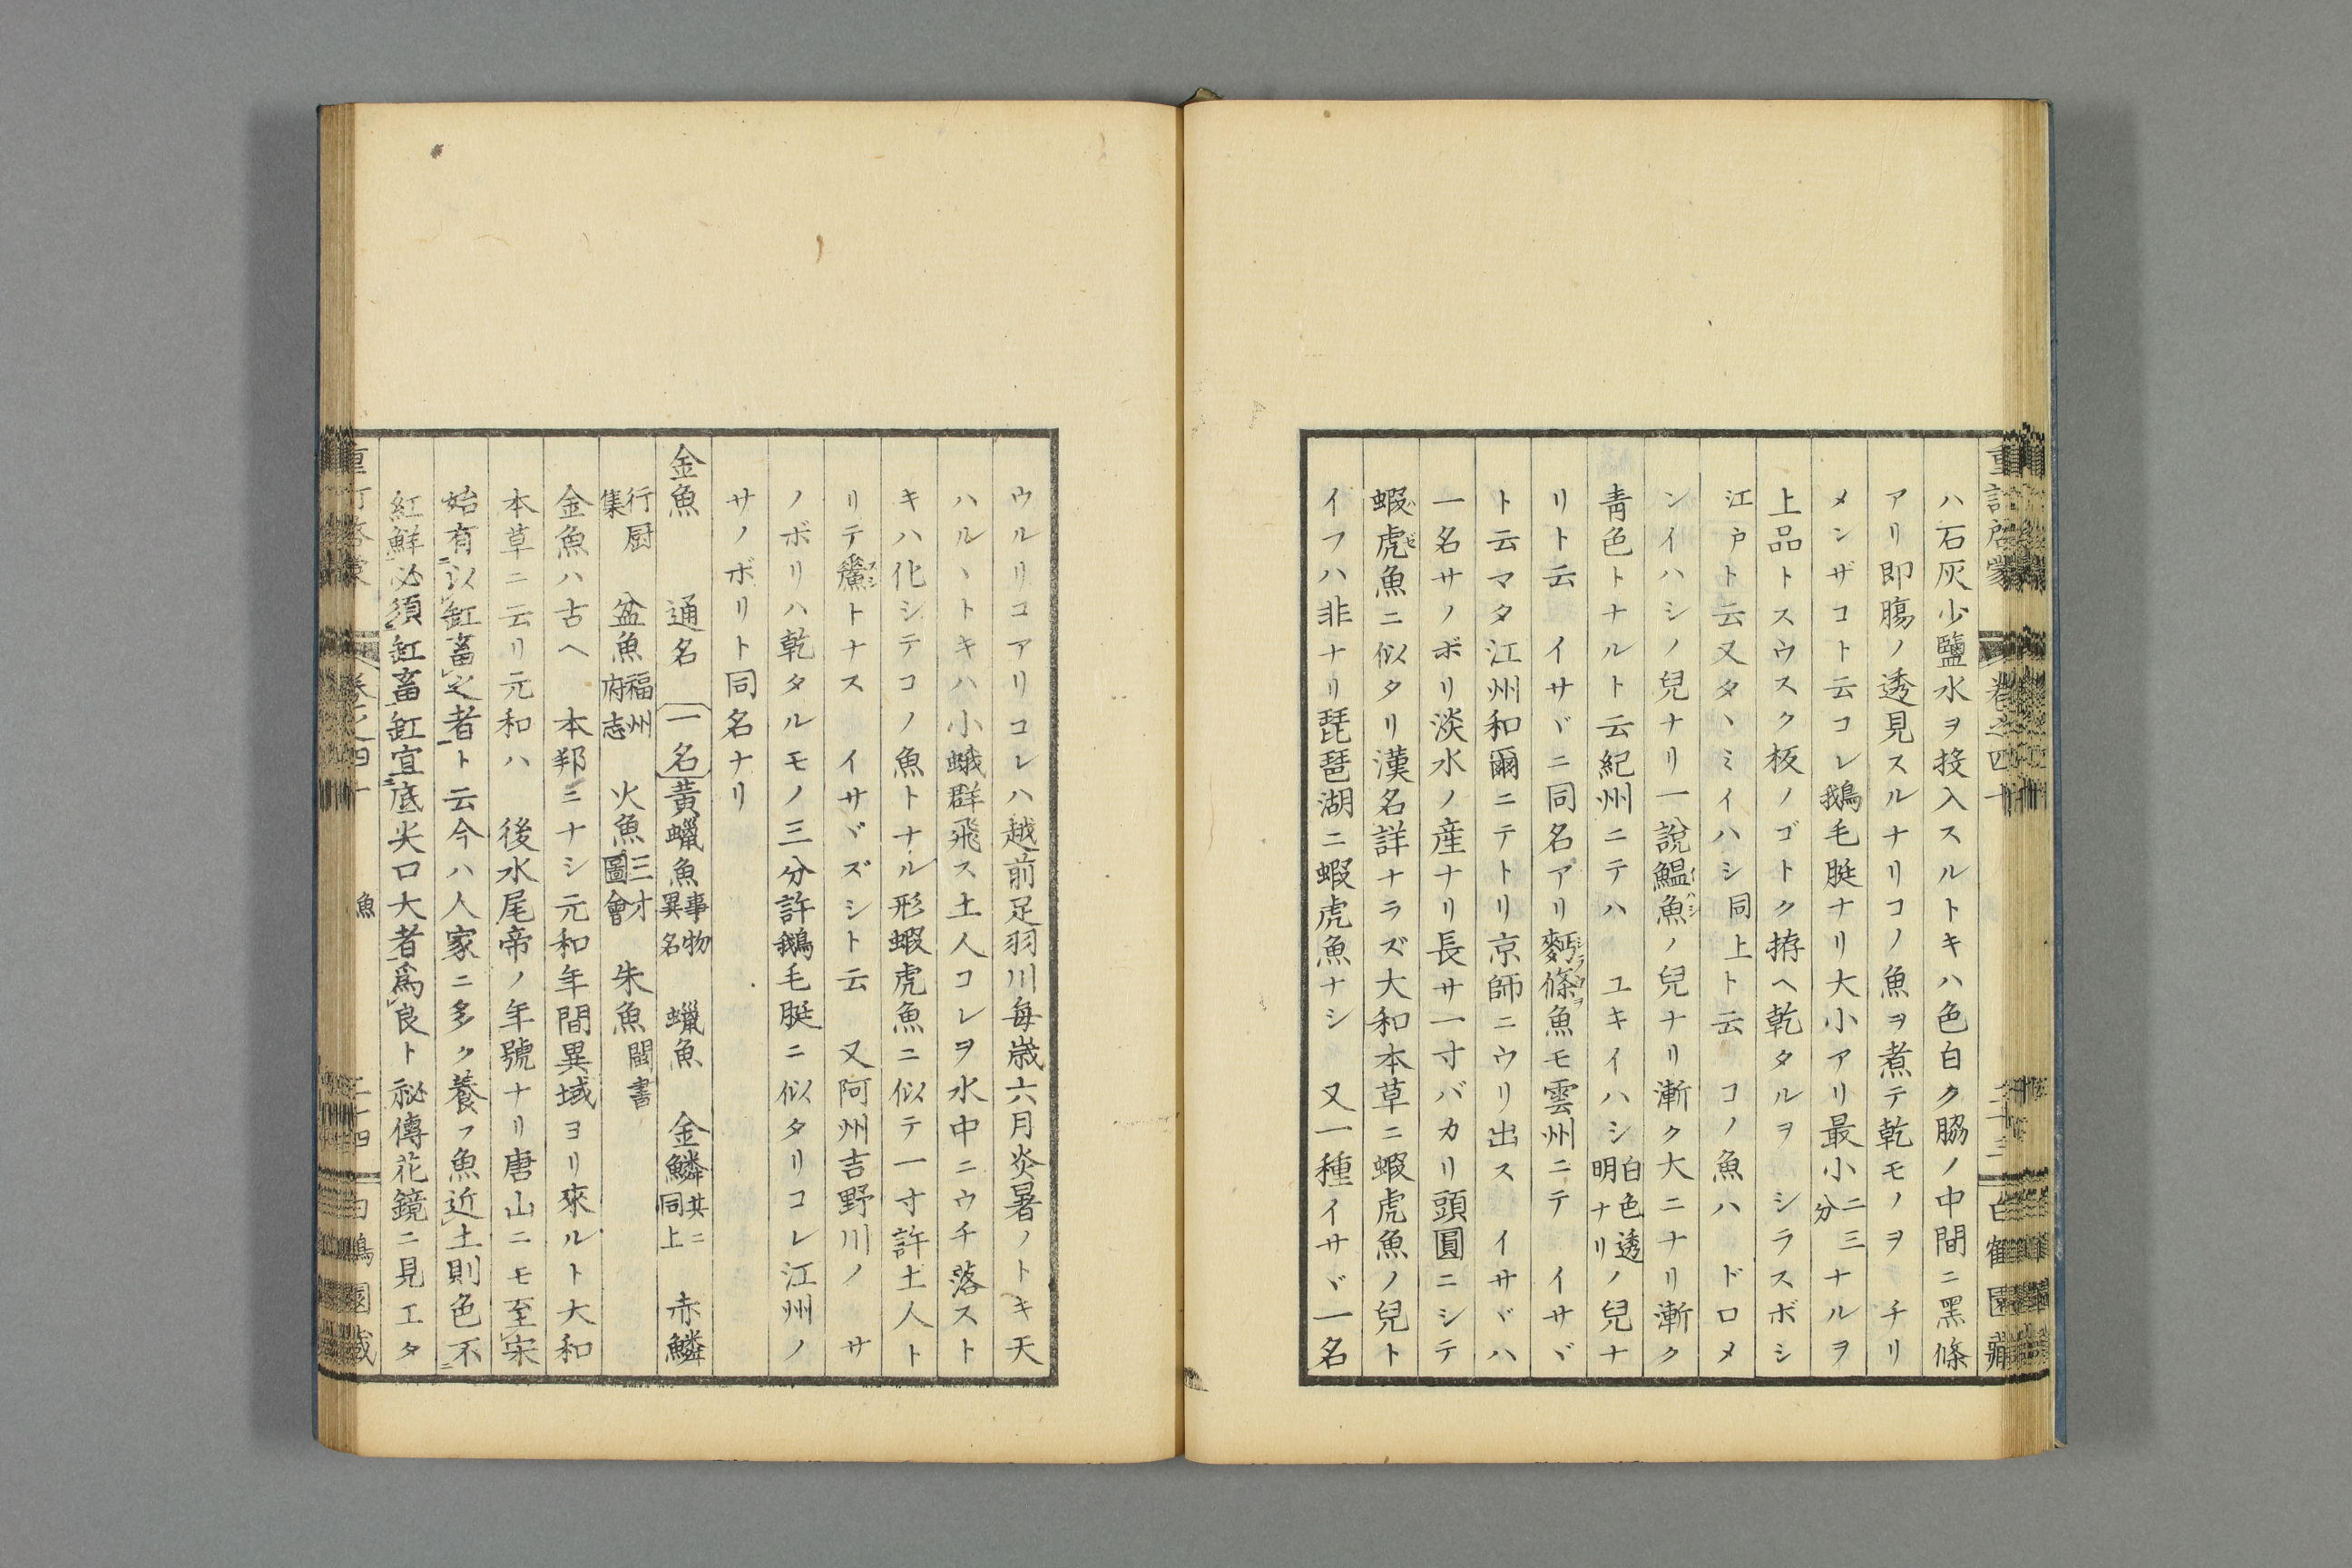 重訂啓蒙 卷之四十 二十三 白鶴園藏
ハ石灰少鹽水ヲ投入スルトキハ色白ク脇ノ中間ニ黒條
アリ即腸ノ透見スルナリコノ魚ヲ煮テ乾モノヲ チリ
メンザコト云コレ鵝毛脡ナリ大小アリ最小二三分ナルヲ
上品トスウスク板ノゴトク揃ヘ乾タルヲ シラスボシ
江戸ト云又タヽミイハシ同上ト云 コノ魚ハ ドロメ
ンイハシノ兒ナリ一說鰛魚イハシノ兒ナリ漸ク大ニナリ漸ク
靑色トナルト云紀州ニテハ ユキイハシ白色透明ナリノ兒ナ
リト云 イサヾニ同名アリ麪條魚シラウヲモ雲州ニテ イサヾ
ト云マタ江州和爾ニテトリ京師ニウリ出ス イサヾハ
一名サノボリ淡水ノ産ナリ長サ一寸バカリ頭圓ニシテ
蝦虎魚ハゼニ似タリ漢名詳ナラズ大和本草ニ蝦虎魚ノ兒ト
イフハ非ナリ琵琶湖ニ蝦虎魚ナシ 又一種イサヾ一名
ウルリコアリコレハ越前足羽川每歳六月炎暑ノトキ天
ハルヽトキハ小蛾群飛ス土人コレヲ水中ニウチ落スト
キハ化シテコノ魚トナル形蝦虎魚ニ似テ一寸許土人ト
リテ鮝スシトナス イサヾズシト云 又阿州吉野川ノ サ
ノボリハ乾タルモノ三分許鵝毛脡ニ似タリコレ江州ノ
サノボリト同名ナリ
金魚 通名 一名 黃蠟魚事物異名 蠟魚 金鱗其ニ同上 赤鱗
行厨集 盆魚福州府志 火魚三才圖會 朱魚閩書
金魚ハ古ヘ 本邦ニナシ元和年間異域ヨリ來ルト大和
本草ニ云リ元和ハ 後水尾帝ノ年號ナリ唐山ニモ至宋
始有以缸畜之者ト云今ハ人家ニ多ク養フ魚近土則色不
紅鮮必須缸畜缸宜底尖口大者爲良ト祕傳花鏡ニ見エタ
卷之四十 魚 二十四